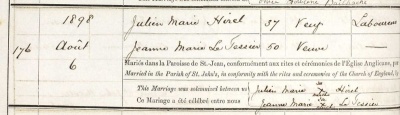 1898 Julien Marie Hérel 37 Veuf Laboureur
176 Août Jeanne Marie Le Tessier 50 Veuve —
6
Mariés dans la Paroisse de St.-Jean, conformément aux rites et cérémonies de l'Eglise Anglicane, p
Married in the Parish of St. John's, in conformity with the rites and ceremonies of the Church of England, b
This Marriage was solemnised between us
Julien Marie X Hérel
Ce Mariage a été célébré entre nous
Jeanne Marie X Le Tessier